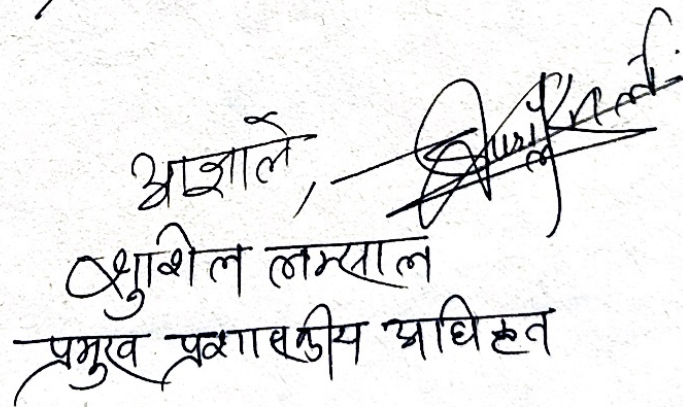 आज्ञाले,
सुशिल लम्साल
प्रमुख प्रशासकीय अधिकृत